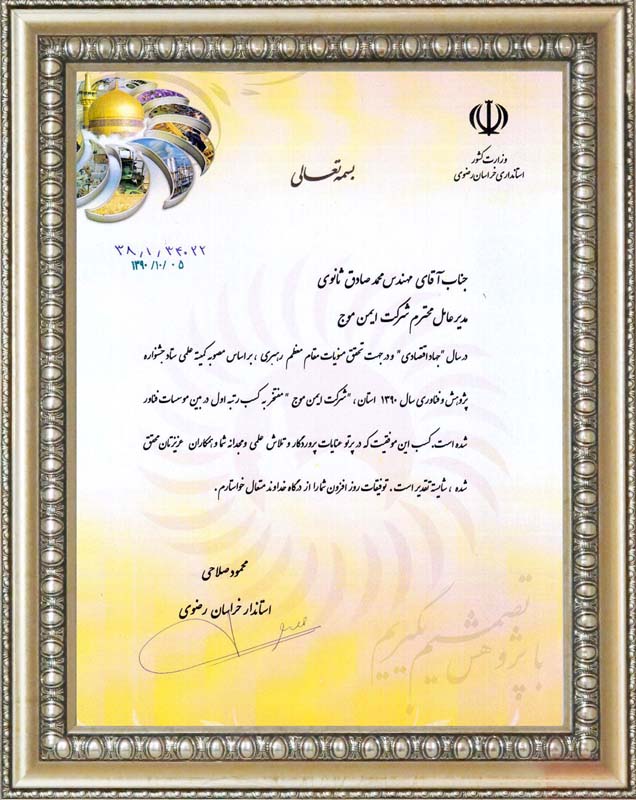 وزارت کشور
استانداری خراسان رضوی
بسمه تعالی
۳۸/۱/۳۴۰۲۲
۱۳۹۰/۱۰/۰۵
جناب آقای مهندس محمد صادق ثانوی
مدیر عامل محترم شرکت ایمن موج
در سال "جهاد اقتصادی" و در جهت تحقق منویات مقام معظم رهبری ، بر اساس مصوبه کمیته علمی ستاد جشنواره
پژوهش و فناوری سال ۱۳۹۰ استان، "شرکت ایمن موج " مفتخر به کسب رتبه اول در بین موسسات فناور
شده است. کسب این موفقیت که در پرتو عنایات پروردگار و تلاش علمی و مجدانه شما و همکاران عزیزتان محقق
شده ، شایسته تقدیر است . توفیقات روز افزون شما را از درگاه خداوند متعال خواستارم .
محمود صلاحی
استاندار خراسان رضوی
با پژوهش تصمیم بگیریم